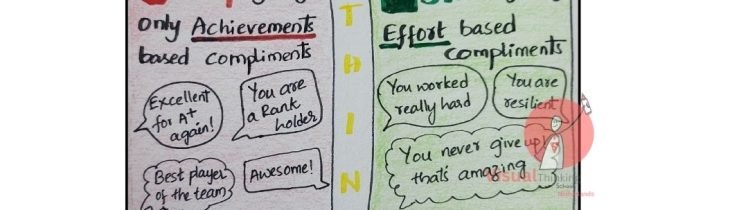 only Achievements
based compliments
Excellent
for A+
again!
You are
a Rank
holder
Best player
of the team
Awesome!
T
h
I
N
Effort based
compliments
You worked
really hard
You are
resilient
You never give up!
that's amazing
Visual Thinking
School